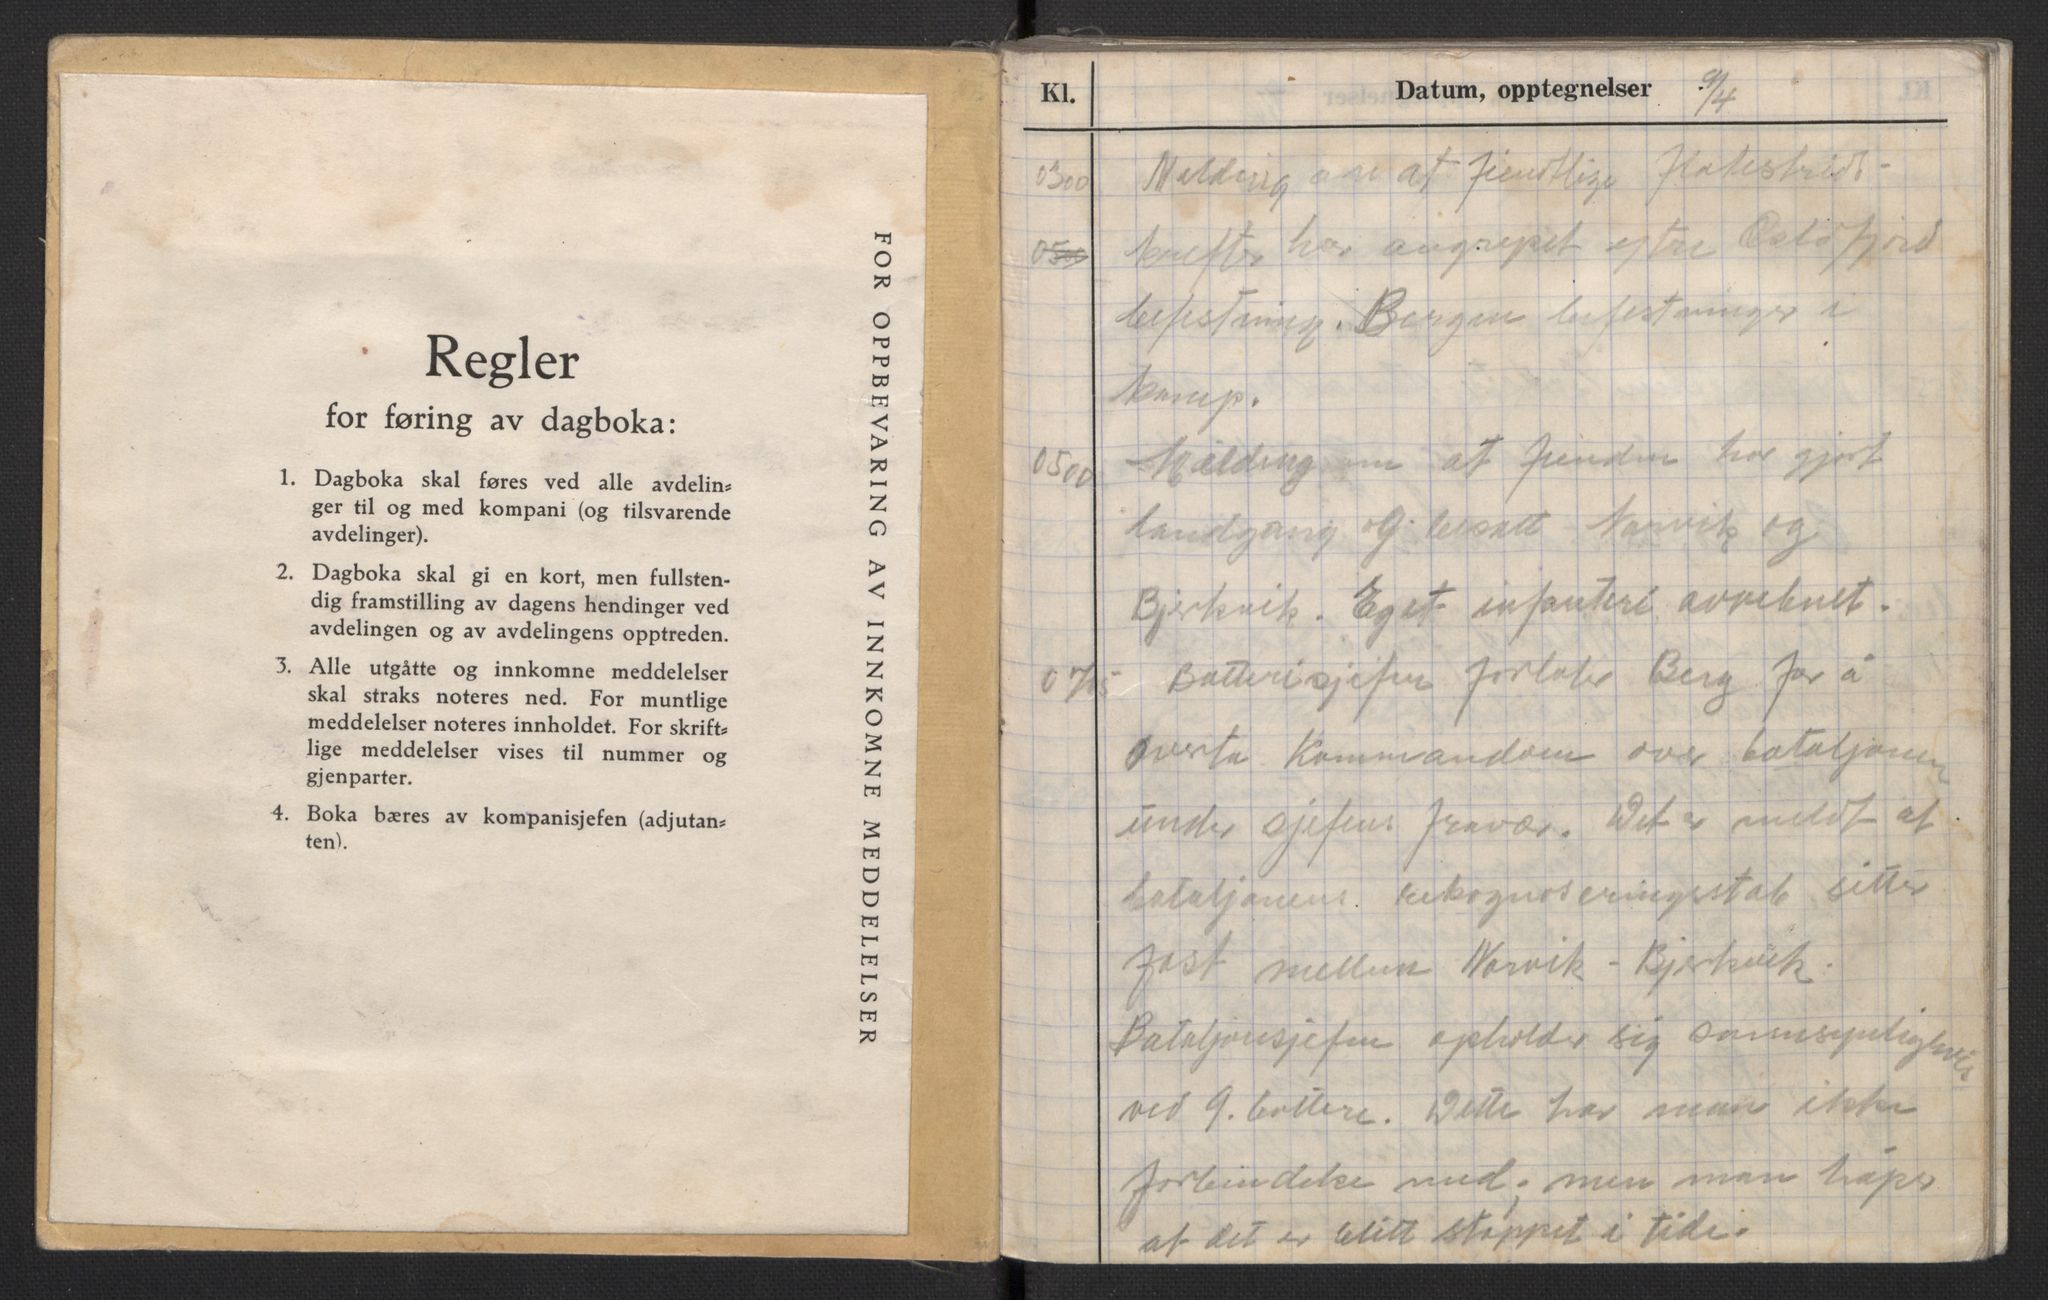 Regler
for føring av dagboka:
1. Dagboka skal føres ved alle avdelin=
ger til og med kompani (og tilsvarende
avdelinger).
2. Dagboka skal gi en kort, men fullsten-
dig framstilling av dagens hendinger ved
avdelingen og av avdelingens opptreden.
3. Alle utgåtte og innkomne meddelelser
skal straks noteres ned. For muntlige
meddelelser noteres innholdet. For skrift=
lige meddelelser vises til nummer og
gjenparter.
4. Boka bæres av kompanisjefen (adjutan=
ten).
FOR OPPBEVARING AV INNKOMNE MEDDELELSER
Kl. Datum, opptegnelser 9/4
0300 Melding om at fiendtlige flatestrids-
0500 krefter har angrepet ytre Oslofjord
befestning. Bergen befestninger i
kamp.
0500 Melding om at fienden har gjort
landgang og besatt Narvik og
Bjerkvik. Eget infanteri avvebnet.
0705 Batterisjefen forlater Berg for å
overta kommandoen over bataljonen
under sjefens fravær. Det er meldt at
bataljonens rekognoseringsstab sitter
fast mellem Narvik - Bjerkvik.
Bataljonsjefen opholder sig sannsynligvis
ved 9. batteri. Dette har man ikke
forbindelse med, men man håper
at det er blitt stoppet i tide.